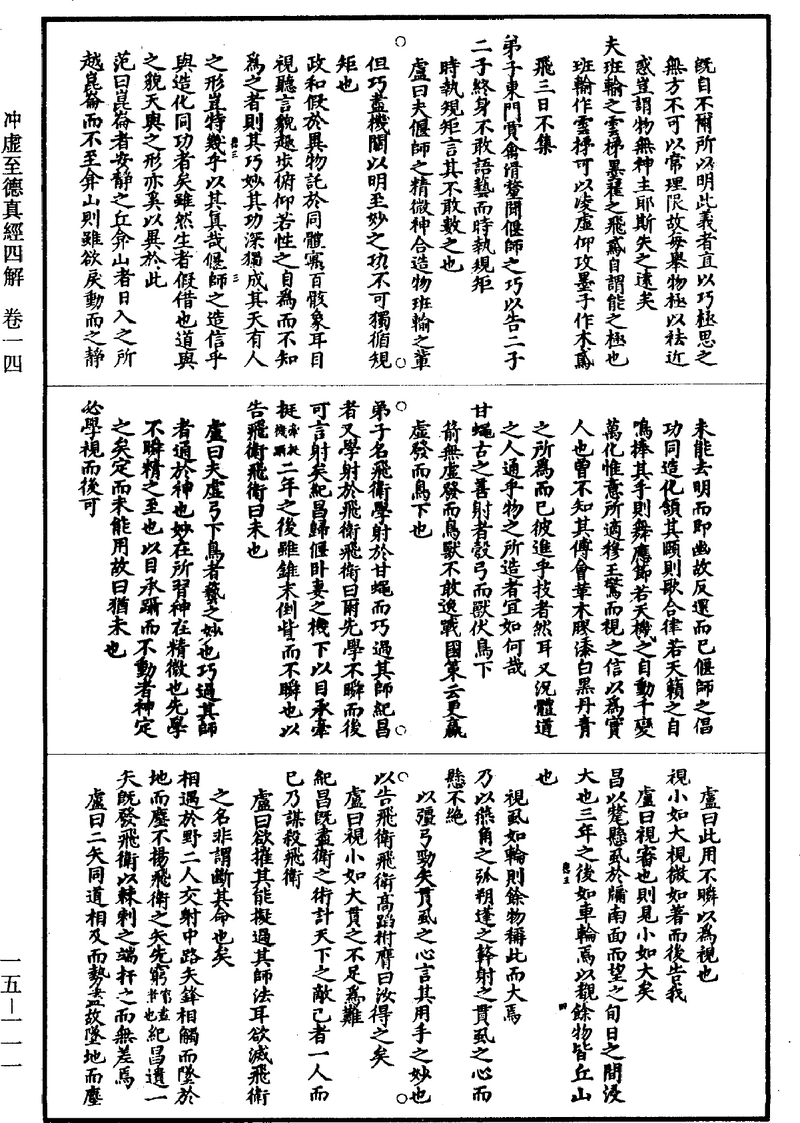 既自不爾所以明此義者直以巧極思之
無方不可以常理限故每舉物極以袪近
惑豈謂物無神主耶斯失之遠矣
夫班輸之雲梯墨翟之飛鳶自謂能之極也
班輸作雲梯可以凌虛仰攻墨子作木鳶
飛三日不集
弟子東門賈禽滑釐聞偃師之巧以告二子
二子終身不敢語藝而時執規矩
時執規矩言其不敢數之也
盧曰夫偃師之精微神合造物班輸之輩
但巧盡機關以明至妙之功不可獨循規
矩也
政和假於異物託於同體寓百骸象耳目
視聽言貌趣步俯仰若性之自為而不知
為之者則其巧妙其功深獨成其天有人
之形豈特幾乎以其真哉偃師之造信乎
與造化同功者矣雖然生者假借也道與
之貌天與之形亦奚以異於此
范曰崑崙者安靜之丘弇山者日入之所
越崑崙而不至弇山則雖欲戾動而之靜
未能去明而即幽故反還而已偃師之倡
功同造化頷其頤則歌合律若天籟之自
鳴捧其手則舞應節若天機之自動千變
萬化惟意所適穆王驚而視之信以為實
人也曾不知其傅會革木膠漆白黑丹青
之所為而已彼進乎技者然耳又況體道
之人通乎物之所造者宜如何哉
甘蠅古之善射者彀弓而獸伏鳥下
箭無虛發而鳥獸不敢逸戰國策云更羸
虛發而鳥下也
弟子名飛衛學射於甘蠅而巧過其師紀昌
者又學射於飛衛飛衛曰爾先學不瞬而後
可言射矣紀昌歸偃臥妻之機下以目承牽
挺二年之後雖錐末倒眥而不瞬也以
告飛衛飛衛曰未也
盧曰夫虛弓下鳥者藝之妙也巧過其師
者通於神也妙在所習神在精微也先學
不瞬精之至也以目承躡而不動者神定
之矣定而未能用故曰猶未也
必學視而後可
盧曰此用不瞬以為視也
視小如大視微如著而後告我
盧曰視審也則見小如大矣
昌以氂懸虱於牖南面而望之旬日之間浸
大也三年之後如車輪焉以覩餘物皆丘山
也
視虱如輪則餘物稱此而大焉
乃以燕角之弧朔蓬之簳射之貫虱之心而
懸不絕
以彊弓勁矢貫虱之心言其用手之妙也
以告飛衛飛衛高蹈拊膺曰汝得之矣
盧曰視小如大貫之不足為難
紀昌既盡衛之術計天下之敵己者一人而
已乃謀殺飛衛
盧曰欲摧其能擬過其師法耳欲滅飛衛
之名非謂斷其命也矣
相遇於野二人交射中路矢鋒相觸而墜於
地而塵不揚飛衛之矢先窮紀昌遺一
矢既發飛衛以棘刺之端扞之而無差焉
盧曰二矢同道相及而勢盡故墜地而塵
沖虛至德真經四解　卷一四
一五—一一一